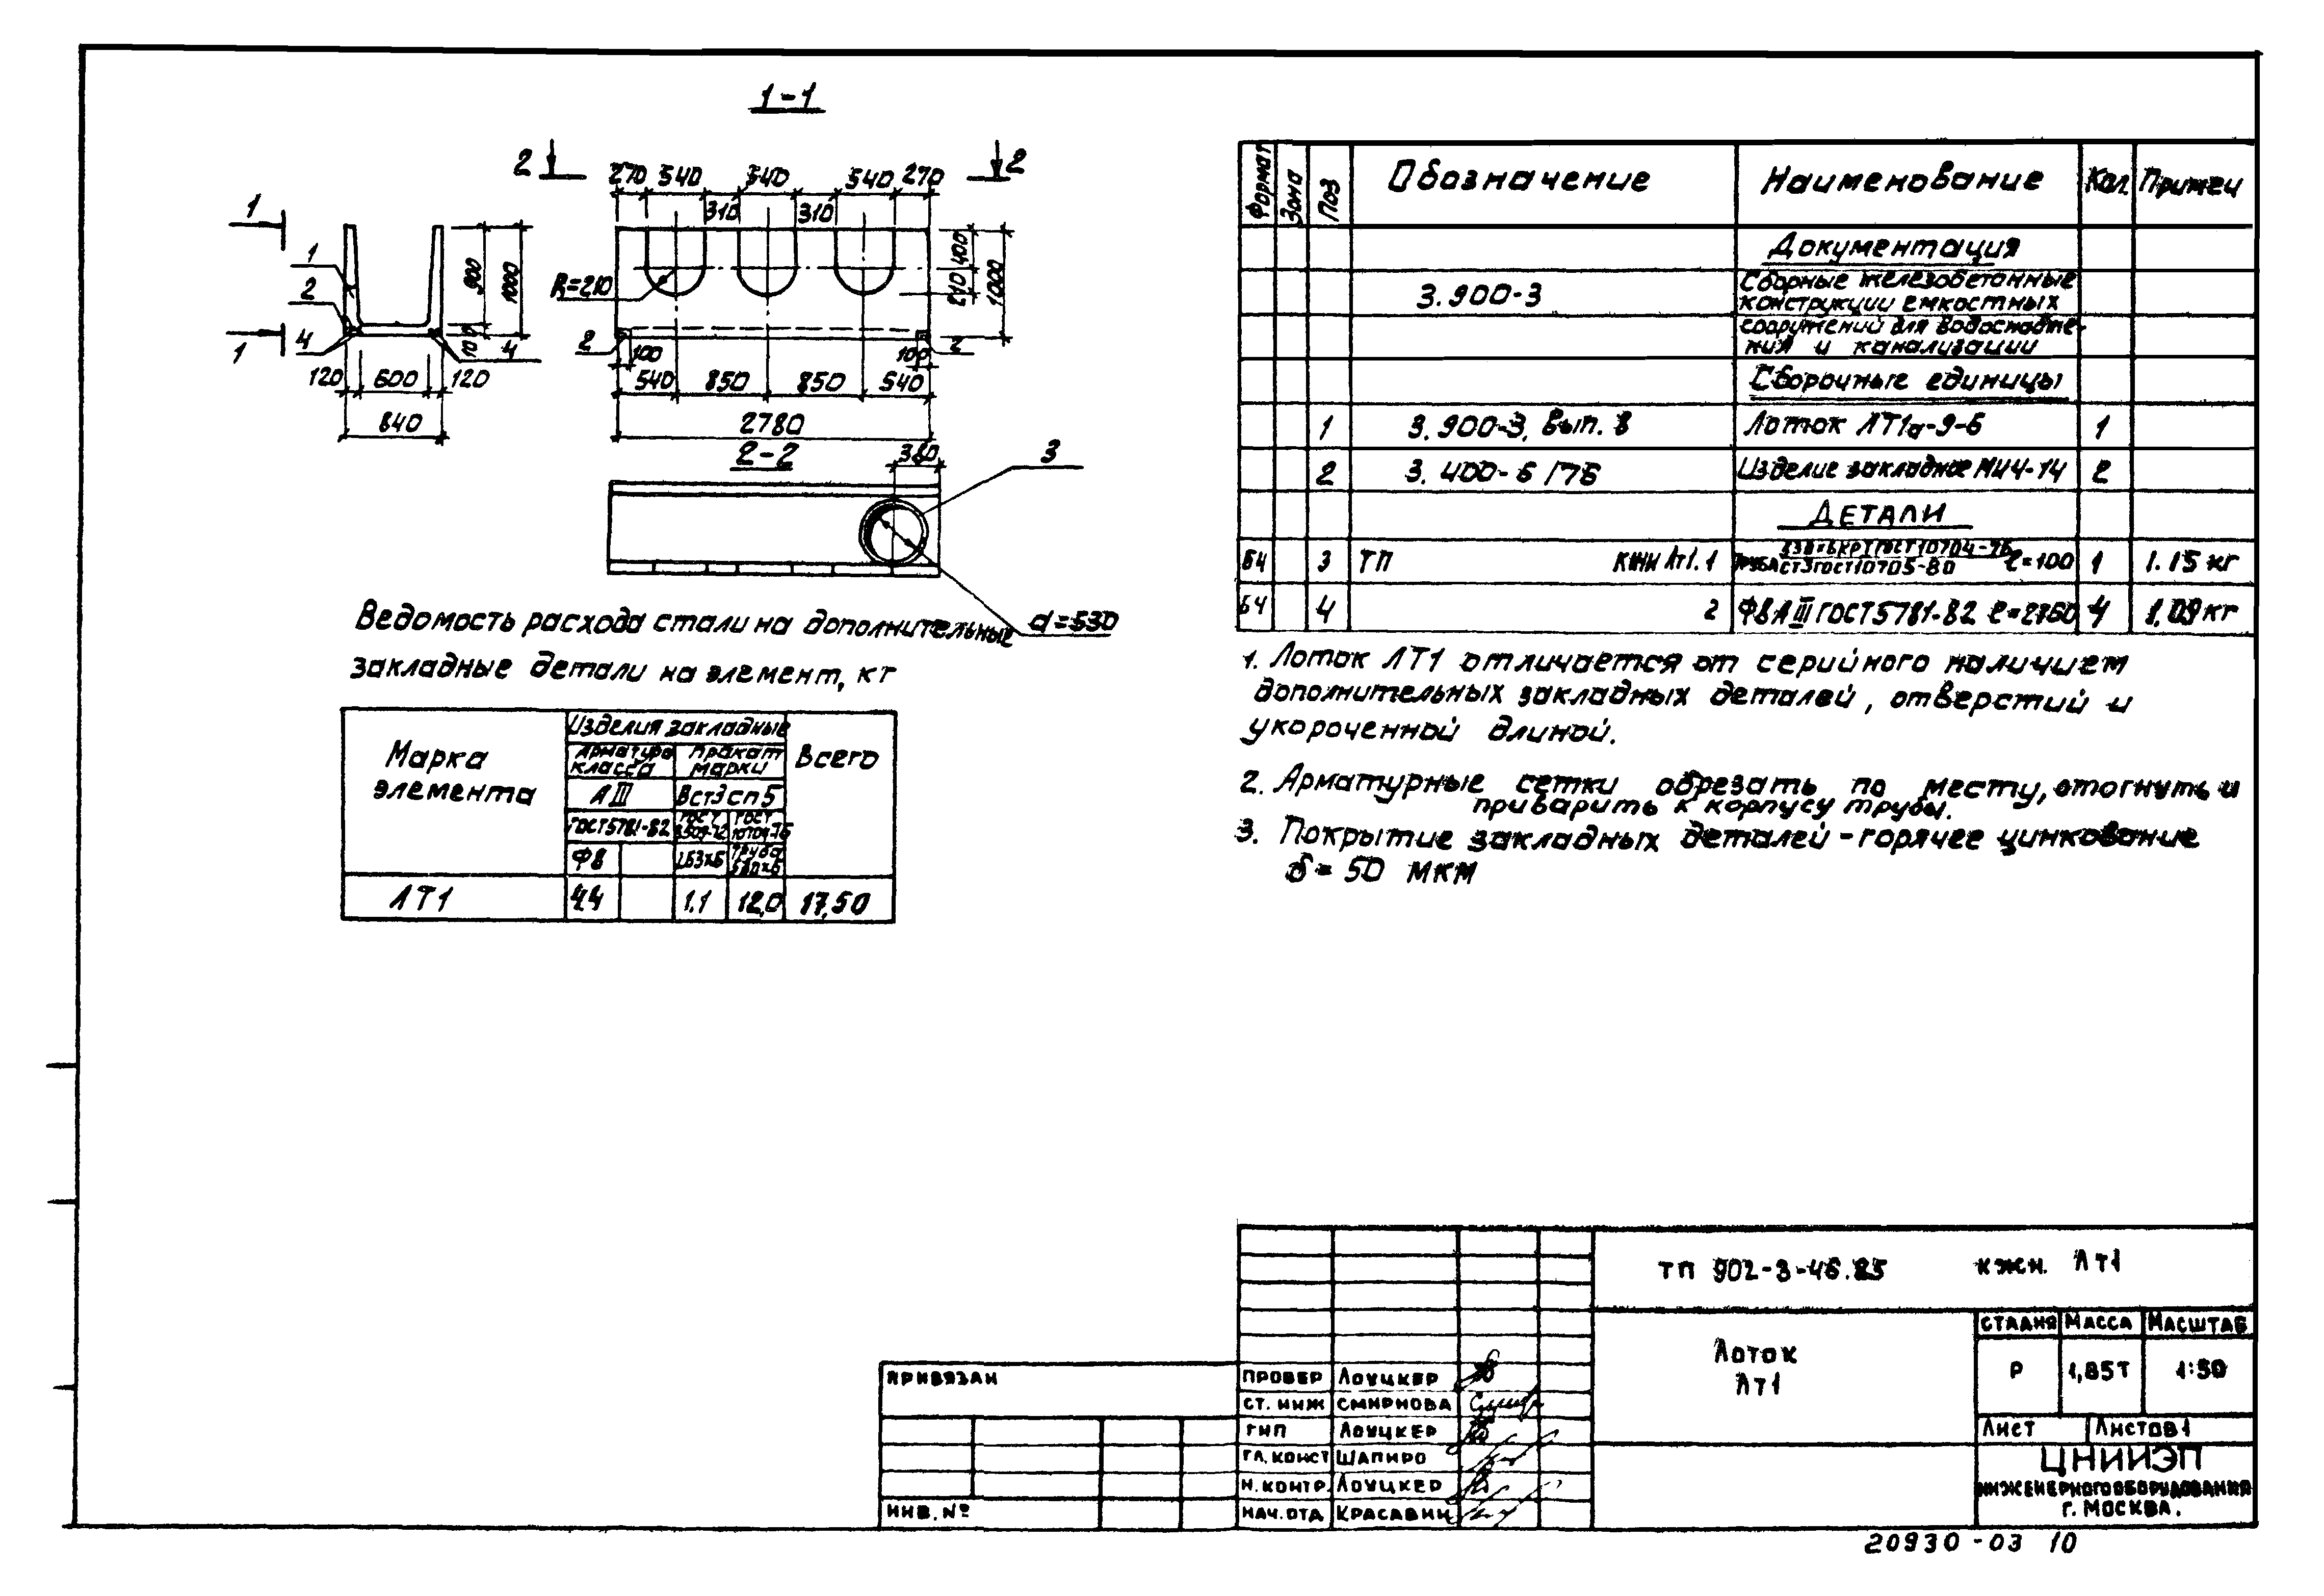 1-1
2 2
270 540 540 540 270
310 310
1
1
1
2
4 4
900 1000
100
120 600 120
840
R=210
400
210 1000
2 2
100 100
540 850 850 540
2780
2-2
3
d=530
Ведомость расхода стали на дополнительные
закладные детали на элемент, кг
Марка элемента
Изделия закладные
Всего
Арматура класса
Прокат марки
А III
Вст3сп5
ГОСТ 5781-82
ГОСТ 8509-72
ГОСТ 10704-76
Ф8
Труба
ЛТ1 4.4 1.1 12,0 17,50
Формат Зона Поз Обозначение Наименование Кол. Примеч
Документация
3.900-3 Сборные железобетонные
конструкции емкостных
сооружений для водоснабже-
ния и канализации
Сборочные единицы
1 3.900-3, Вып. 8 Лоток ЛТ1а-9-6 1
2 3.400-6/76 Изделие закладное МН4-14 2
ДЕТАЛИ
БЧ 3 ТП ЛТ1.1 ТРУБА СТ3 ГОСТ10705-80 ℓ=100 1 1.15 кг
БЧ 4 2 Ф8АIII ГОСТ5781-82 ℓ=2760 4 1,09 кг
1. Лоток ЛТ1 отличается от серийного наличием
дополнительных закладных деталей, отверстий и
укороченной длиной.
2. Арматурные сетки обрезать по месту, отогнуть и
приварить к корпусу трубы.
3. Покрытие закладных деталей - горячее цинкование
δ= 50 мкм
ТП 902-3-46.85 КЖН. ЛТ1
Лоток
ЛТ1
СТАДИЯ МАССА МАСШТАБ
Р 1,85Т 1:50
Лист Листов 1
ЦНИИЭП
ИНЖЕНЕРНОГО ОБОРУДОВАНИЯ
Г. МОСКВА.
ПРИВЯЗАН
ИНВ. №
ПРОВЕР ЛОУЦКЕР
СТ. ИНЖ СМИРНОВА
ГИП ЛОУЦКЕР
ГЛ. КОНСТ ШАПИРО
Н. КОНТР. ЛОУЦКЕР
НАЧ. ОТД КРАСАВИН
20930-03 10